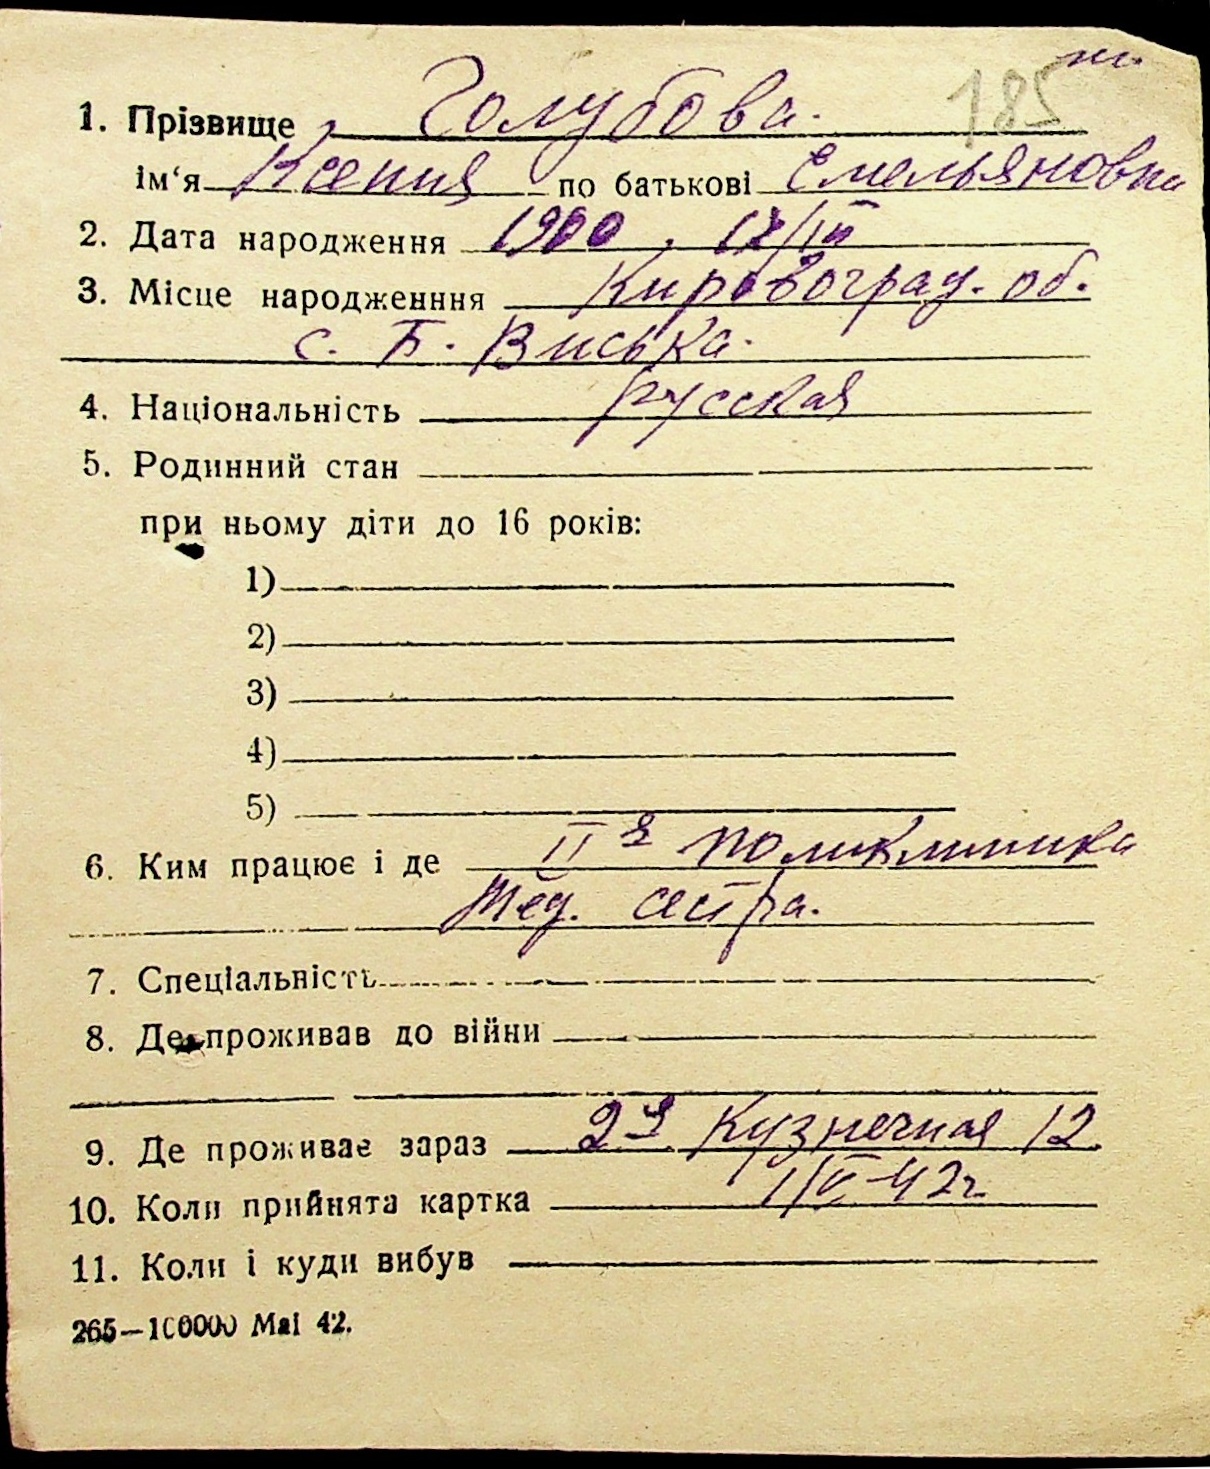 185
1. Прізвище Голубова.
ім‘я Ксения по батькові Емельяновна
2. Дата народження 1900,
3. Місце народженння Кировоград. об.
с. Б. Виська.
4. Національність русская
5. Родинний стан
при ньому діти до 16 років:
1)
2)
3)
4)
5)
6. Ким працює і де IIя поликлиника
Мед. сестра.
7. Спеціальність
8. Де проживав до війни
9. Де проживає зараз 2я Кузнечная 12.
10. Коли прийнята картка 1/VI-42г.
11. Коли і куди вибув
265—100000 Mai 42.